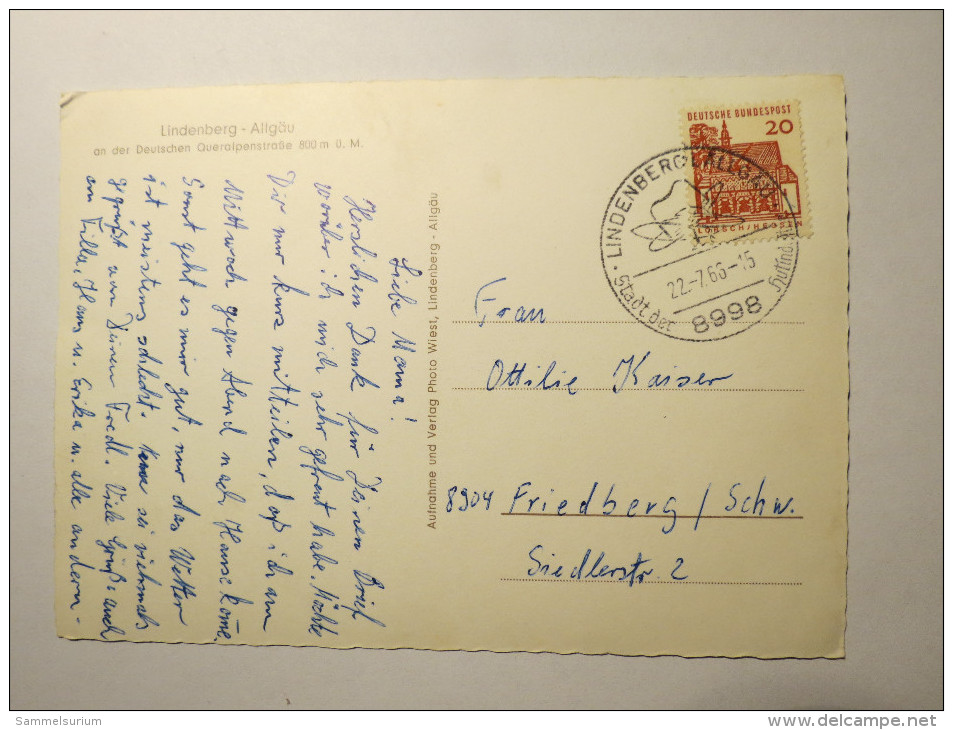 Lindenberg - Allgäu
an der Deutschen Queralpenstraße 800 m ü. M.
Liebe Mama!
Herzlichen Dank für Deinen Brief
worüber ich mich sehr gefreut habe. Möchte
Dir nur kurz mitteilen, daß ich am
Mittwoch gegen Abend nach Hause kom̄e.
Sonst geht es mir gut, nur das Wetter
ist meistens schlecht. sei vielmals
gegrüßt von Deinem Fredl. Viele Grüße auch
an Tilla, Hans u. Erika u. alle andern.-
Aufnahme und Verlag Photo Wiest, Lindenberg - Allgäu
DEUTSCHE BUNDESPOST
20
LORSCH/HESSEN
LINDENBERG (ALLGÄU)
22.-7.66-15
8998
Stadt der Hutindustrie
Frau
Ottilie Kaiser
8904 Friedberg / Schw.
Siedlerstr. 2
Sammelsurium
http://www.delcampe.net